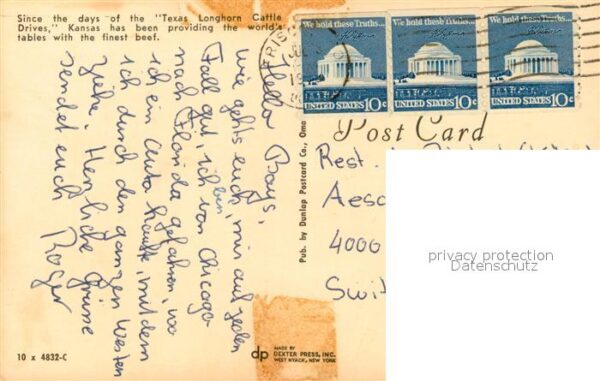 Since the days of the "Texas Longhorn Cattle
Drives," Kansas has been providing the world's
tables with the finest beef.
We hold these Truths...
We hold these Truths...
We hold these Truths...
UNITED STATES 10c
UNITED STATES 10c
UNITED STATES 10c
Post Card
Hello Boys,
wie gehts euch, mir auf jeden
Fall gut, ich bin von Chicago
nach Florida gefahren, wo
ich ein Auto kaufte, mit dem
ich durch den ganzen Westen
ziehe. Herzliche Grüsse
sendet euch Roger
Rest.
Aesc
4000
Swit
Pub. by Dunlap Postcard Co., Oma
privacy protection
Datenschutz
10 x 4832-C
dp
MADE BY
DEXTER PRESS, INC.
WEST NYACK, NEW YORK